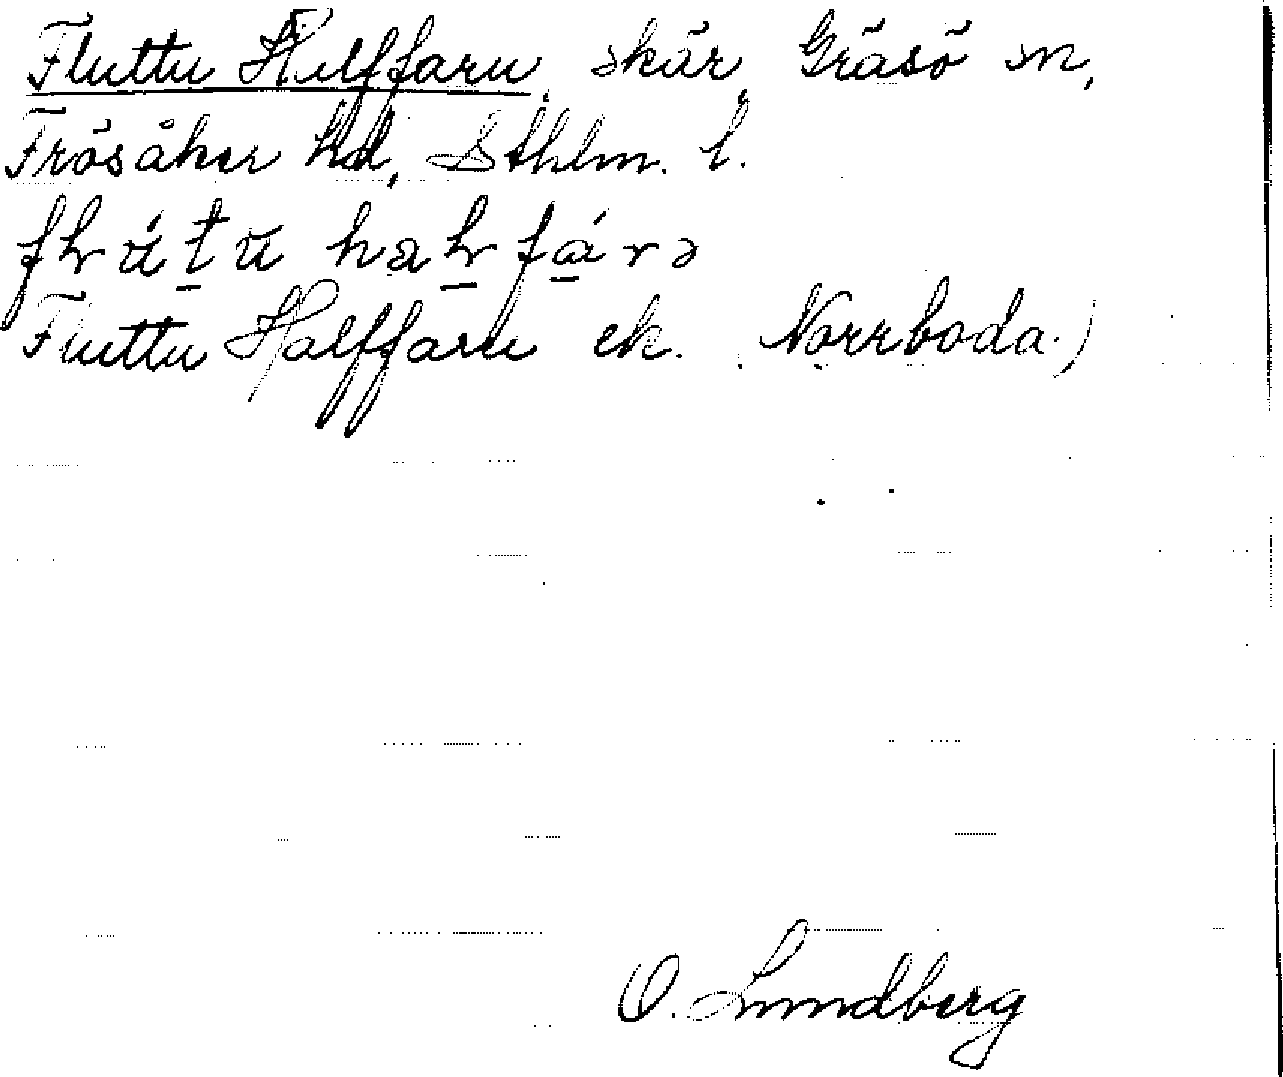 Fluttu Halffaru, skär, Gräsö sn,
Frösåker hd, Sthlm. l.
Fluttu Halffaru ek. Norrboda.)
O. Lundberg